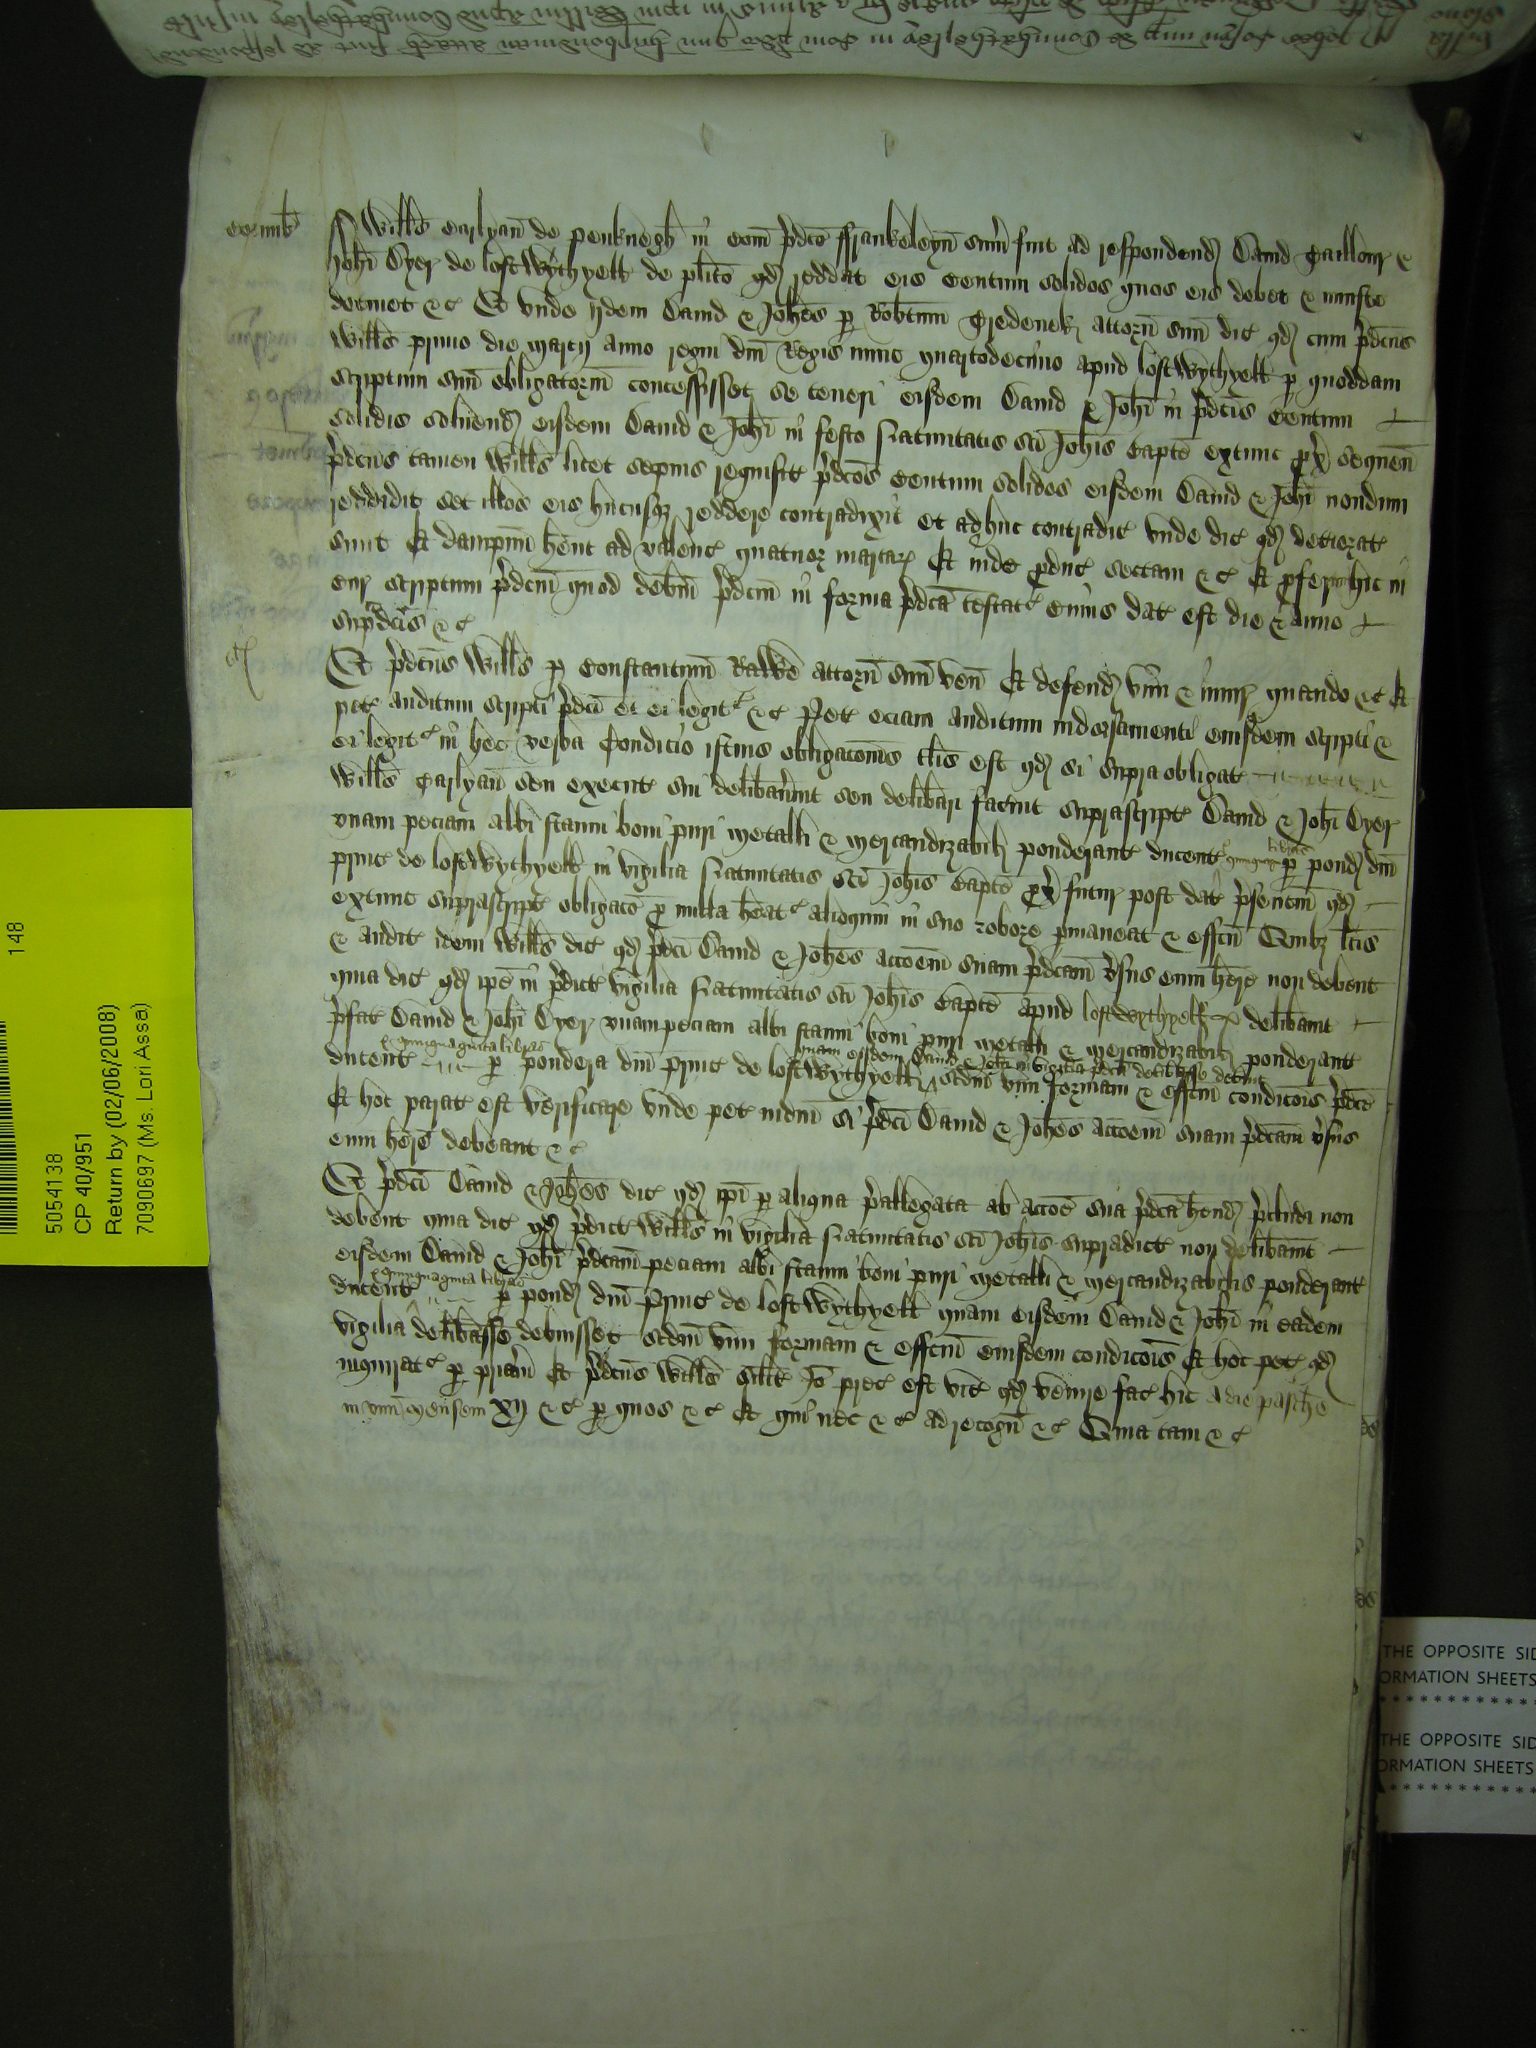 Cornub
Willms Carlyan de Penknegh in Com pdco Ffrankeleyn sum fuit ad respondend David Taillour &
Johi Dyer de Lostwythyell de plito qd reddat eis Centum solidos quos eis debet & iniuste
detinet &c Et unde ijdem David & Johes p Robtum Tredenek attorn suu dic qd cum pdcus
Wills primo die marcij anno regni dni Regis nunc quartodecimo apud Lostwythyell p quoddam
scriptum suu obligatoriu concessisset se teneri eisdem David & Johi in pdcis Centum
solidis solvend eisdem David & Johi in festo Nativitatis sci Johis Bapte extunc px sequen
pdcus tamen Wills licet sepius requisit pdcos Centum solidos eisdem David & Johi nondum
reddidit set illos eis hucusq reddere contradixit et adhuc contradic unde dic qd deteriorat
sunt Et dampnu hent ad valenc quatuor marcar Et inde pduc sectam &c Et pferunt hic in
Cur scriptum pdcm quod debm pdcm in forma pdca testat cuius dat est die & anno
supdcis &c
Et pdcus Wills p Constantinu attorn suu ven Et defend vim & iniur quando &c Et
pet auditum scripti pdci et ei legit &c Pet eciam auditum indorsamenti eiusdem scripti &
ei legit in hec verba Condicio istius obligacois tlis est qd si supra obligat
Wills Carlyan seu execut sui delibaverint seu delibari facint suprascript David & Johi Dyer
unam peciam albi stanni boni puri metalli & mercandizabil ponderant ducent & quinquag libras p pond dni
Princ de Lostwythyell in vigilia Nativitatis sci Johis Bapte px futur post dat psentiu qd
extunc suprascript obligaco p nulla heat alioquin in suo robore pmaneat & effcu Quibz lcis
& audit idem Wills dic qd pdci David & Johes accoem suam pdcam vsus eum here non debent
quia dic qd ipe in pdict vigilia Nativitatis sci Johis Bapte apud Lostwythyell delibavit
pfat David & Johi Dyer unam peciam albi stanni boni puri metalli & mercandizabil ponderant
ducent & quinquaginta libras p pondera dni Princ de Lostwythyell quam eisdem David & Johi in vigilia pdca delibasse debuit scdm vim formam & effcm condicois pdce
Et hoc parat est verificare unde pet iudm si pdci David & Johes accoem suam pdcam vsus
eum here debeant &c
Et pdci David & Johes dic qd ipi p aliqua pallegata ab accoe sua pdca hend pcludi non
debent quia dic qd pdict Wills in vigilia Nativitatis sci Johis supradict non delibavit
eisdem David & Johi pdcam peciam albi stanni boni puri metalli & mercandizabilis ponderant
ducent & quinquaginta libras p pond dni Princ de Lostwythyell quam eisdem David & Johi in eadem
vigilia delibasse debuisset scdm vim formam & effcm eiusdem condicois Et hoc pet qd
inquirat p priam Et pdcus Wills silit Io prec est vic qd venire fac hic a die pasche
in unu mensem xij &c p quos &c Et qui nec &c ad recogn &c Quia tam &c
148
5054138
CP 40/951
Return by (02/06/2008)
7090697 (Ms. Lori Assa)
THE OPPOSITE SID
ORMATION SHEETS
THE OPPOSITE SID
ORMATION SHEETS